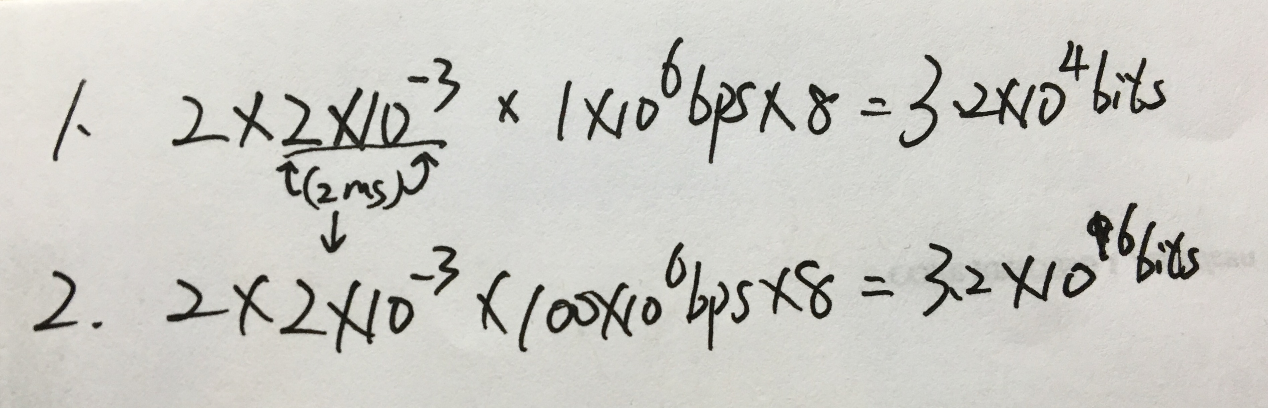 1. 2×2×10⁻³ × 1×10⁶bps×8=3.2×10⁴bits
↑(2ms)↑
↓
2. 2×2×10⁻³×100×10⁶bps×8=3.2×10⁶bits